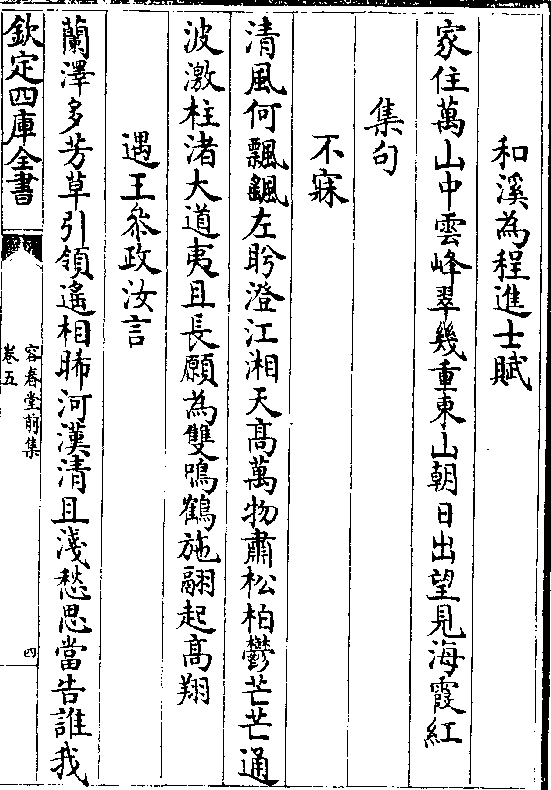 和溪為程進士賦
家住萬山中雲峰翠幾重東山朝日出望見海霞紅
集句
不寐
清風何飄颻左盻澄江湘天髙萬物肅松柏鬱芒芒通
波激柱渚大道夷且長願為雙鳴鶴施翮起髙翔
遇王叅政汝言
蘭澤多芳草引領遙相睎河漢清且淺愁思當告誰我
欽定四庫全書
容春堂前集
卷五
四